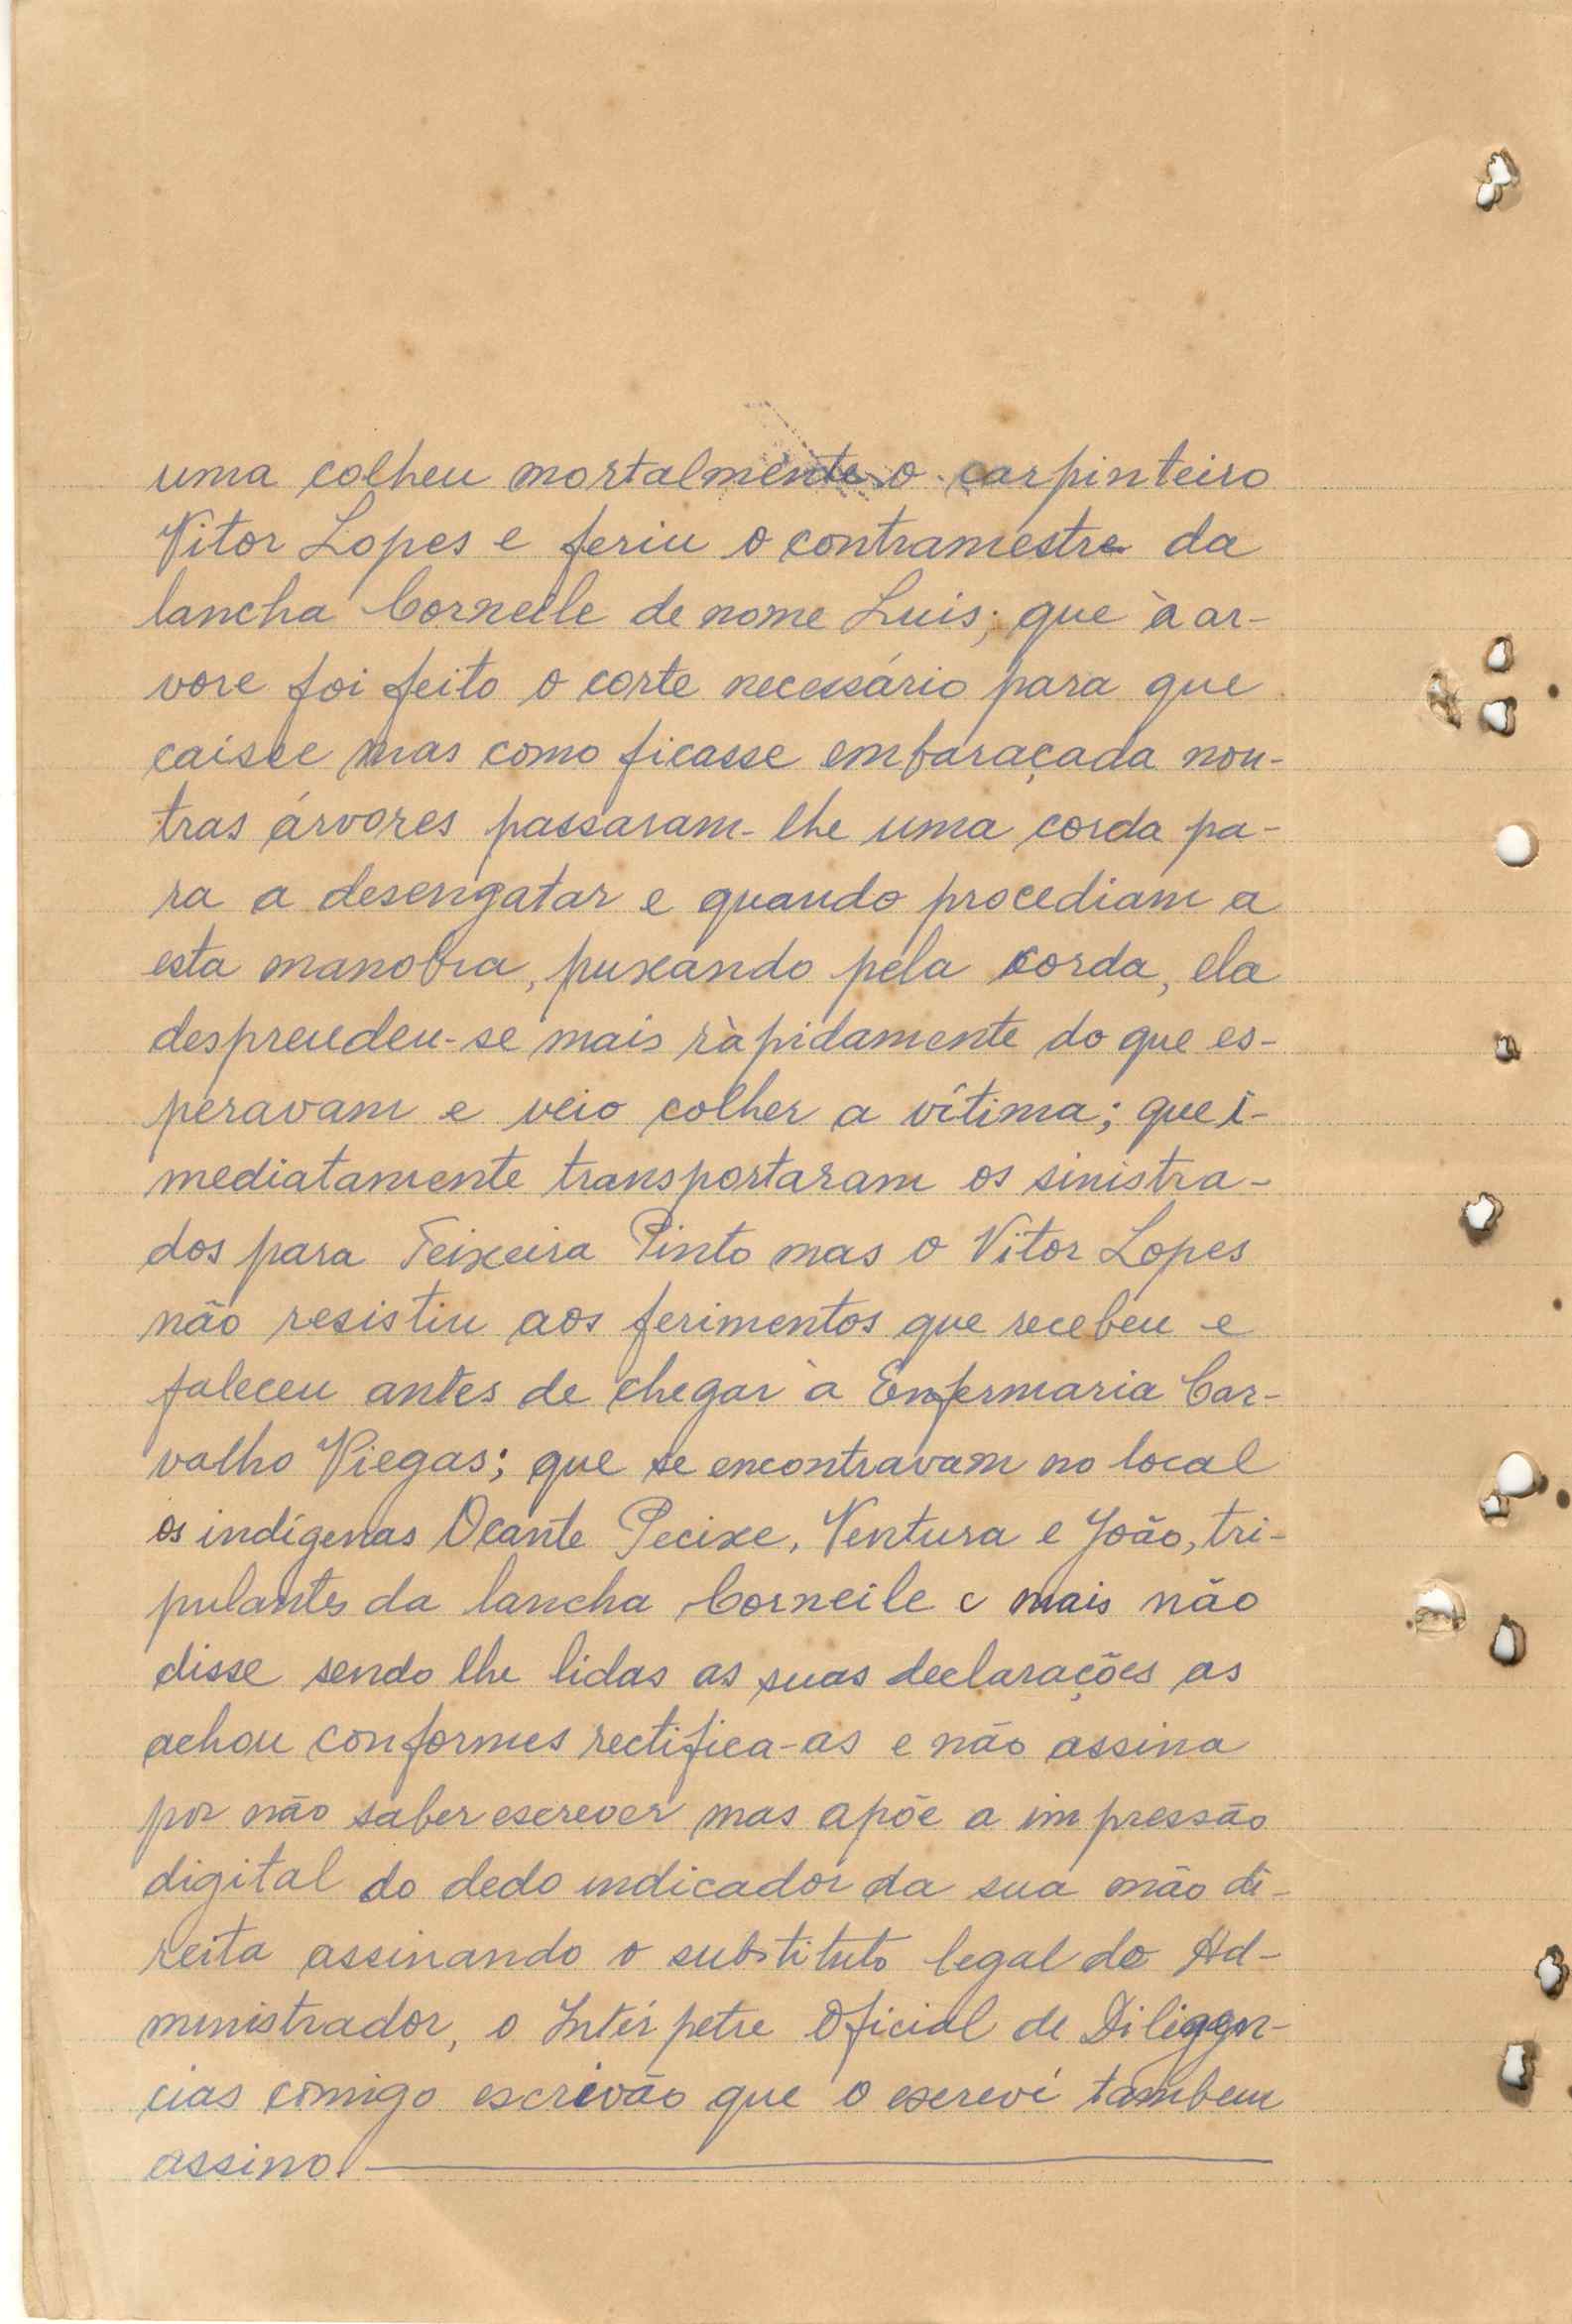 uma colheu mortalmente o carpinteiro
Vitor Lopes e feriu o contramestre da
lancha Corneile de nome Luis; que à ar-
vore foi feito o corte necessário para que
caísse mas como ficasse embaraçada nou-
tras árvores passaram-lhe uma corda pa-
ra a desengatar e quando procediam a
esta manobra, puxando pela corda, ela
desprendeu-se mais ràpidamente do que es-
peravam e veio colher a vítima; que i-
mediatamente transportaram os sinistra-
dos para Teixeira Pinto mas o Vitor Lopes
não resistiu aos ferimentos que recebeu e
faleceu antes de chegar à Enfermaria Car-
valho Viegas; que se encontravam no local
os indígenas Ocante Pecixe, Ventura e João, tri-
pulantes da lancha Corneile e mais não
disse sendo lhe lidas as suas declarações as
achou conformes rectifica-as e não assina
por não saber escrever mas apõe a impressão
digital do dedo indicador da sua mão di-
reita assinando o substituto legal do Ad-
ministrador, o Intérpetre Oficial de Diligen-
cias comigo escrivão que o escreví tambem
assino.